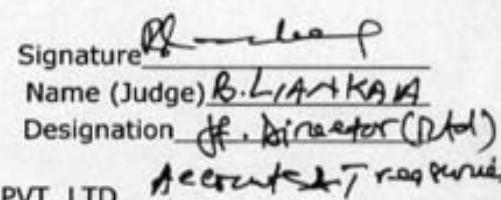 Signature
Name (Judge) B. LIANKAIA
Designation Jt. Director (Rtd)
PVT. LTD. Accounts & Treasuries